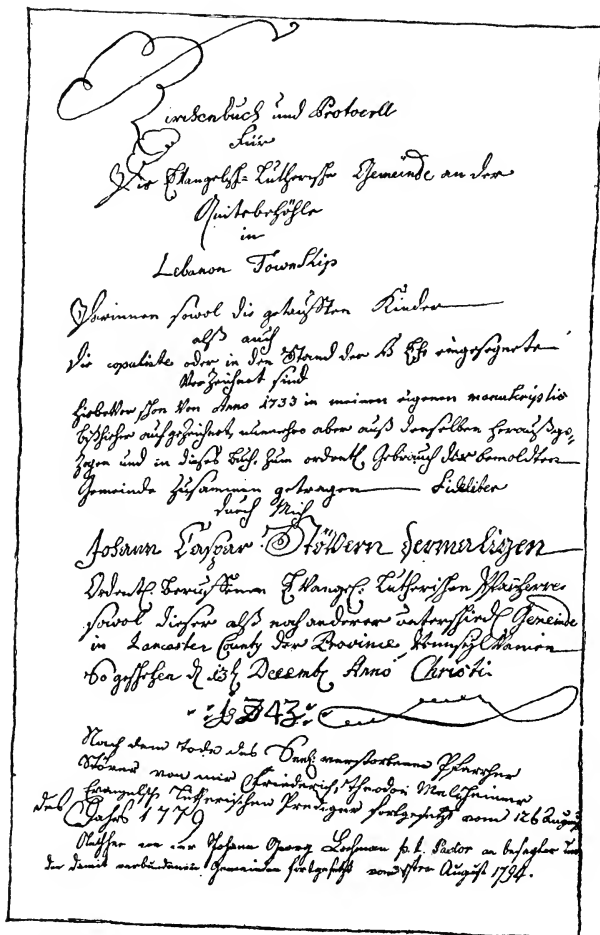 Kirchenbuch und Protocoll
Für
Die Evangelisch-Lutherische Gemeinde an der
Quitebehöhle
in
Lebanon Township
Darinnen sowol die getaufften Kinder
alß auch
die copulirte oder in den Stand der H. Ehe eingesegnete
Verzeichnet sind
schon von Anno 1733 in meinen eigenen manuscriptis
bißhieher aufgezeichnet, nunmehro aber auß denselben heraußge-
zogen und in dieses Buch zum ordentl. Gebrauch der bemeldten
Gemeinde zusammen getragen Fideliter
durch Mich
Johann Caspar Stövern Dermaligen
Ordentl. beruffenen Evangel. Lutherischen Pfarherrn
sowol dieser alß noch anderer unterschiedl. Gemeinde
in Lancaster County der Provinie Pennsylvanien
So geschehen d. 13t. Decemb. Anno Christi
1743
Nach dem Tode des Seel. verstorbenen Pfarrher
Stövers von mir Friederich Theodor Melsheimer
Evangelisch Lutherischen Prediger fortgesetzt vom 126 August
des Jahrs 1779
von mir Johann Georg Lochman p. t. Pastor an besagter und
der damit verbundenen Gemeinden fortgesetzt vom August 1794.